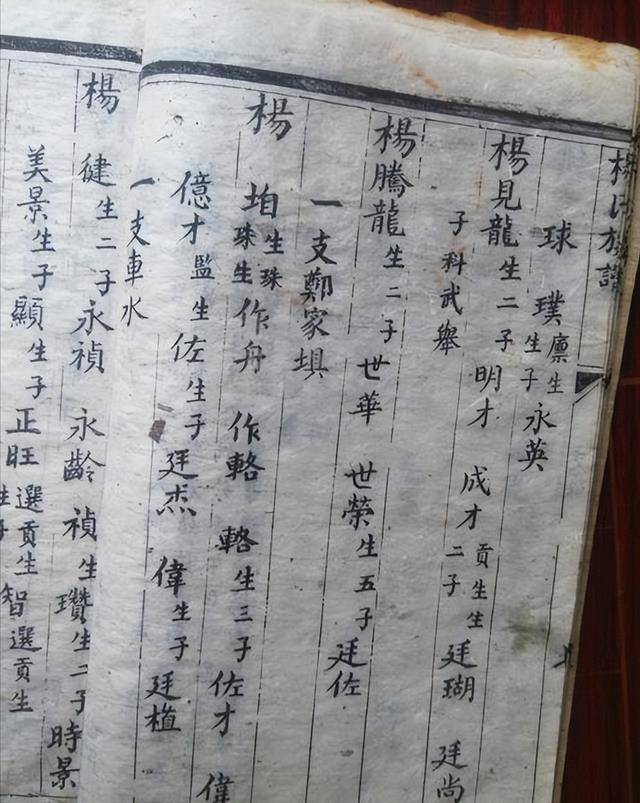 楊氏族譜
球 璞廩生生子永英
楊見龍生二子明才 成才貢生生二子廷瑚 廷尚
子科武舉
楊騰龍生二子世華 世榮生五子廷佐
一支鄭家埧
楊 垍生珠珠生作舟 作輅 輅生三子佐才 偉
億才監生 佐生子廷杰 偉生子廷植
一支車水
楊 健生二子永禎 永齡 禎生瓚生二子時景
美景生子顯生子正旺選貢生智選貢生